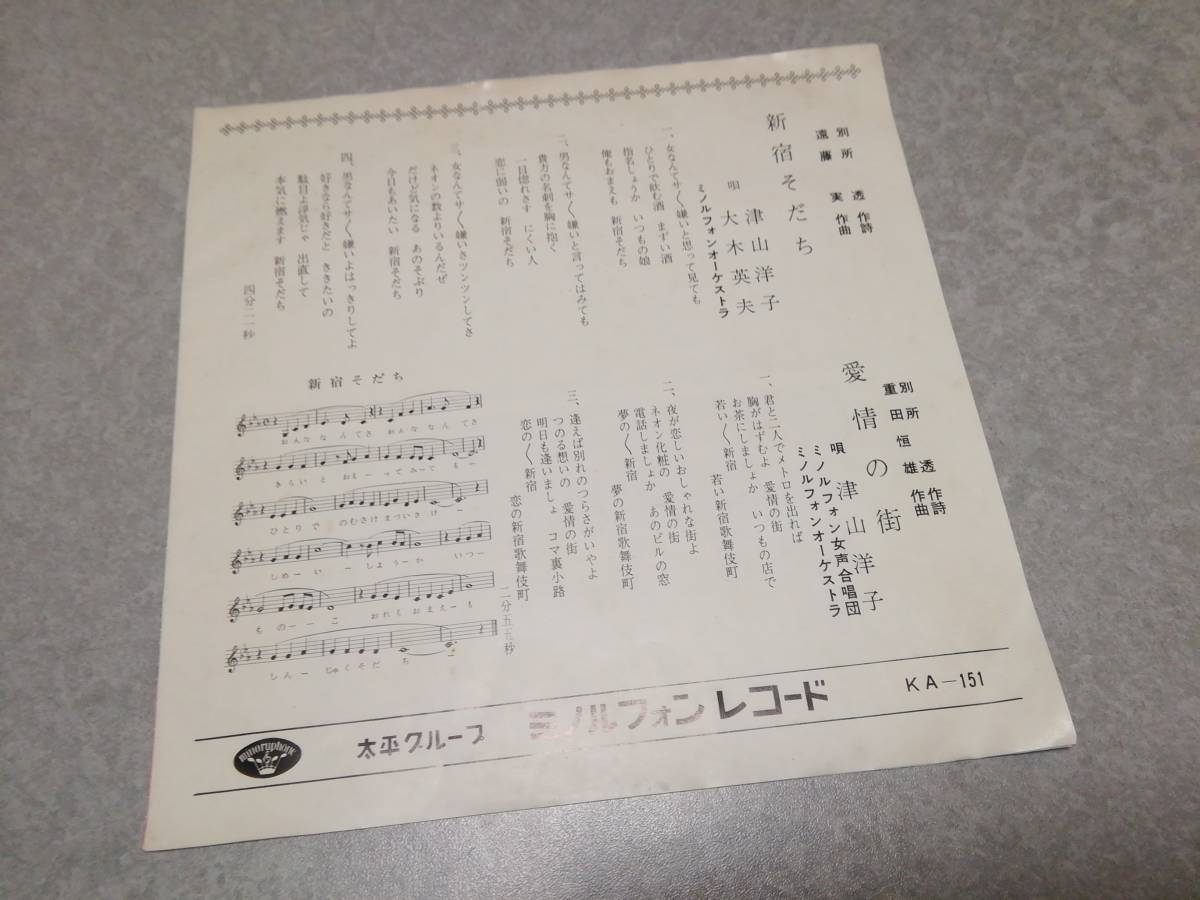 別所透 作詩
遠藤実 作曲
新宿そだち
津山洋子
唄 大木英夫
ミノルフォンオーケストラ
一、女なんてサ〱嫌いと思って見ても
ひとりで飲む酒 まずい酒
指名しょうか いつもの娘
俺もおまえも 新宿そだち
二、男なんてサ〱嫌いと言ってはみても
貴方の名刺を胸に抱く
一目惚れさす にくい人
恋に弱いの 新宿そだち
三、女なんてサ〱嫌いさツンツンしてさ
ネオンの数よりいるんだぜ
だけど気になる あのそぶり
今日もあいたい 新宿そだち
四、男なんてサ〱嫌いよはっきりしてよ
好きなら好きだと ききたいの
駄目よ浮気じゃ 出直して
本気に燃えます 新宿そだち
四分二一秒
別所透 作詩
重田恒雄 作曲
愛情の街
唄 津山洋子
ミノルフォン女声合唱団
ミノルフォンオーケストラ
一、君と二人でメトロを出れば
胸がはずむよ 愛情の街
お茶にしましょか いつもの店で
若い〱新宿 若い新宿歌舞伎町
二、夜が恋しいおしゃれな街よ
ネオン化粧の 愛情の街
電話しましょか あのビルの窓
夢の〱新宿 夢の新宿歌舞伎町
三、逢えば別れのつらさがいやよ
つのる想いの 愛情の街
明日も逢いましょ コマ裏小路
恋の〱新宿 恋の新宿歌舞伎町
二分五五秒
新宿そだち
おんななんてさ おんななんてさ
きらいと おもーってみーても もー
ひとりで のむさけまずいさけー
しめーいーしょうーか いつー
ものーーこ おれもおまえーも
しんーじゅくそだち
minoruphone
太平グループ ミノルフォンレコード KA-151